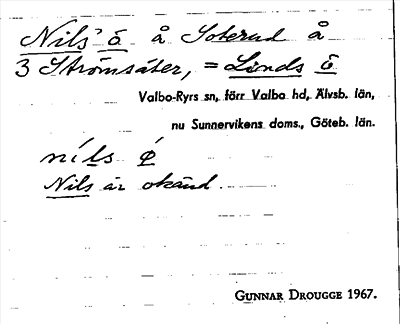 Nils' ö å Soterud å
3 Strömsäter, = Linds ö
Valbo-Ryrs sn, förr Valbo hd, Älvsb. län,
nu Sunnervikens doms., Göteb. län.
ní̀ls ǿ
Nils är okänd.
GUNNAR DROUGGE 1967.